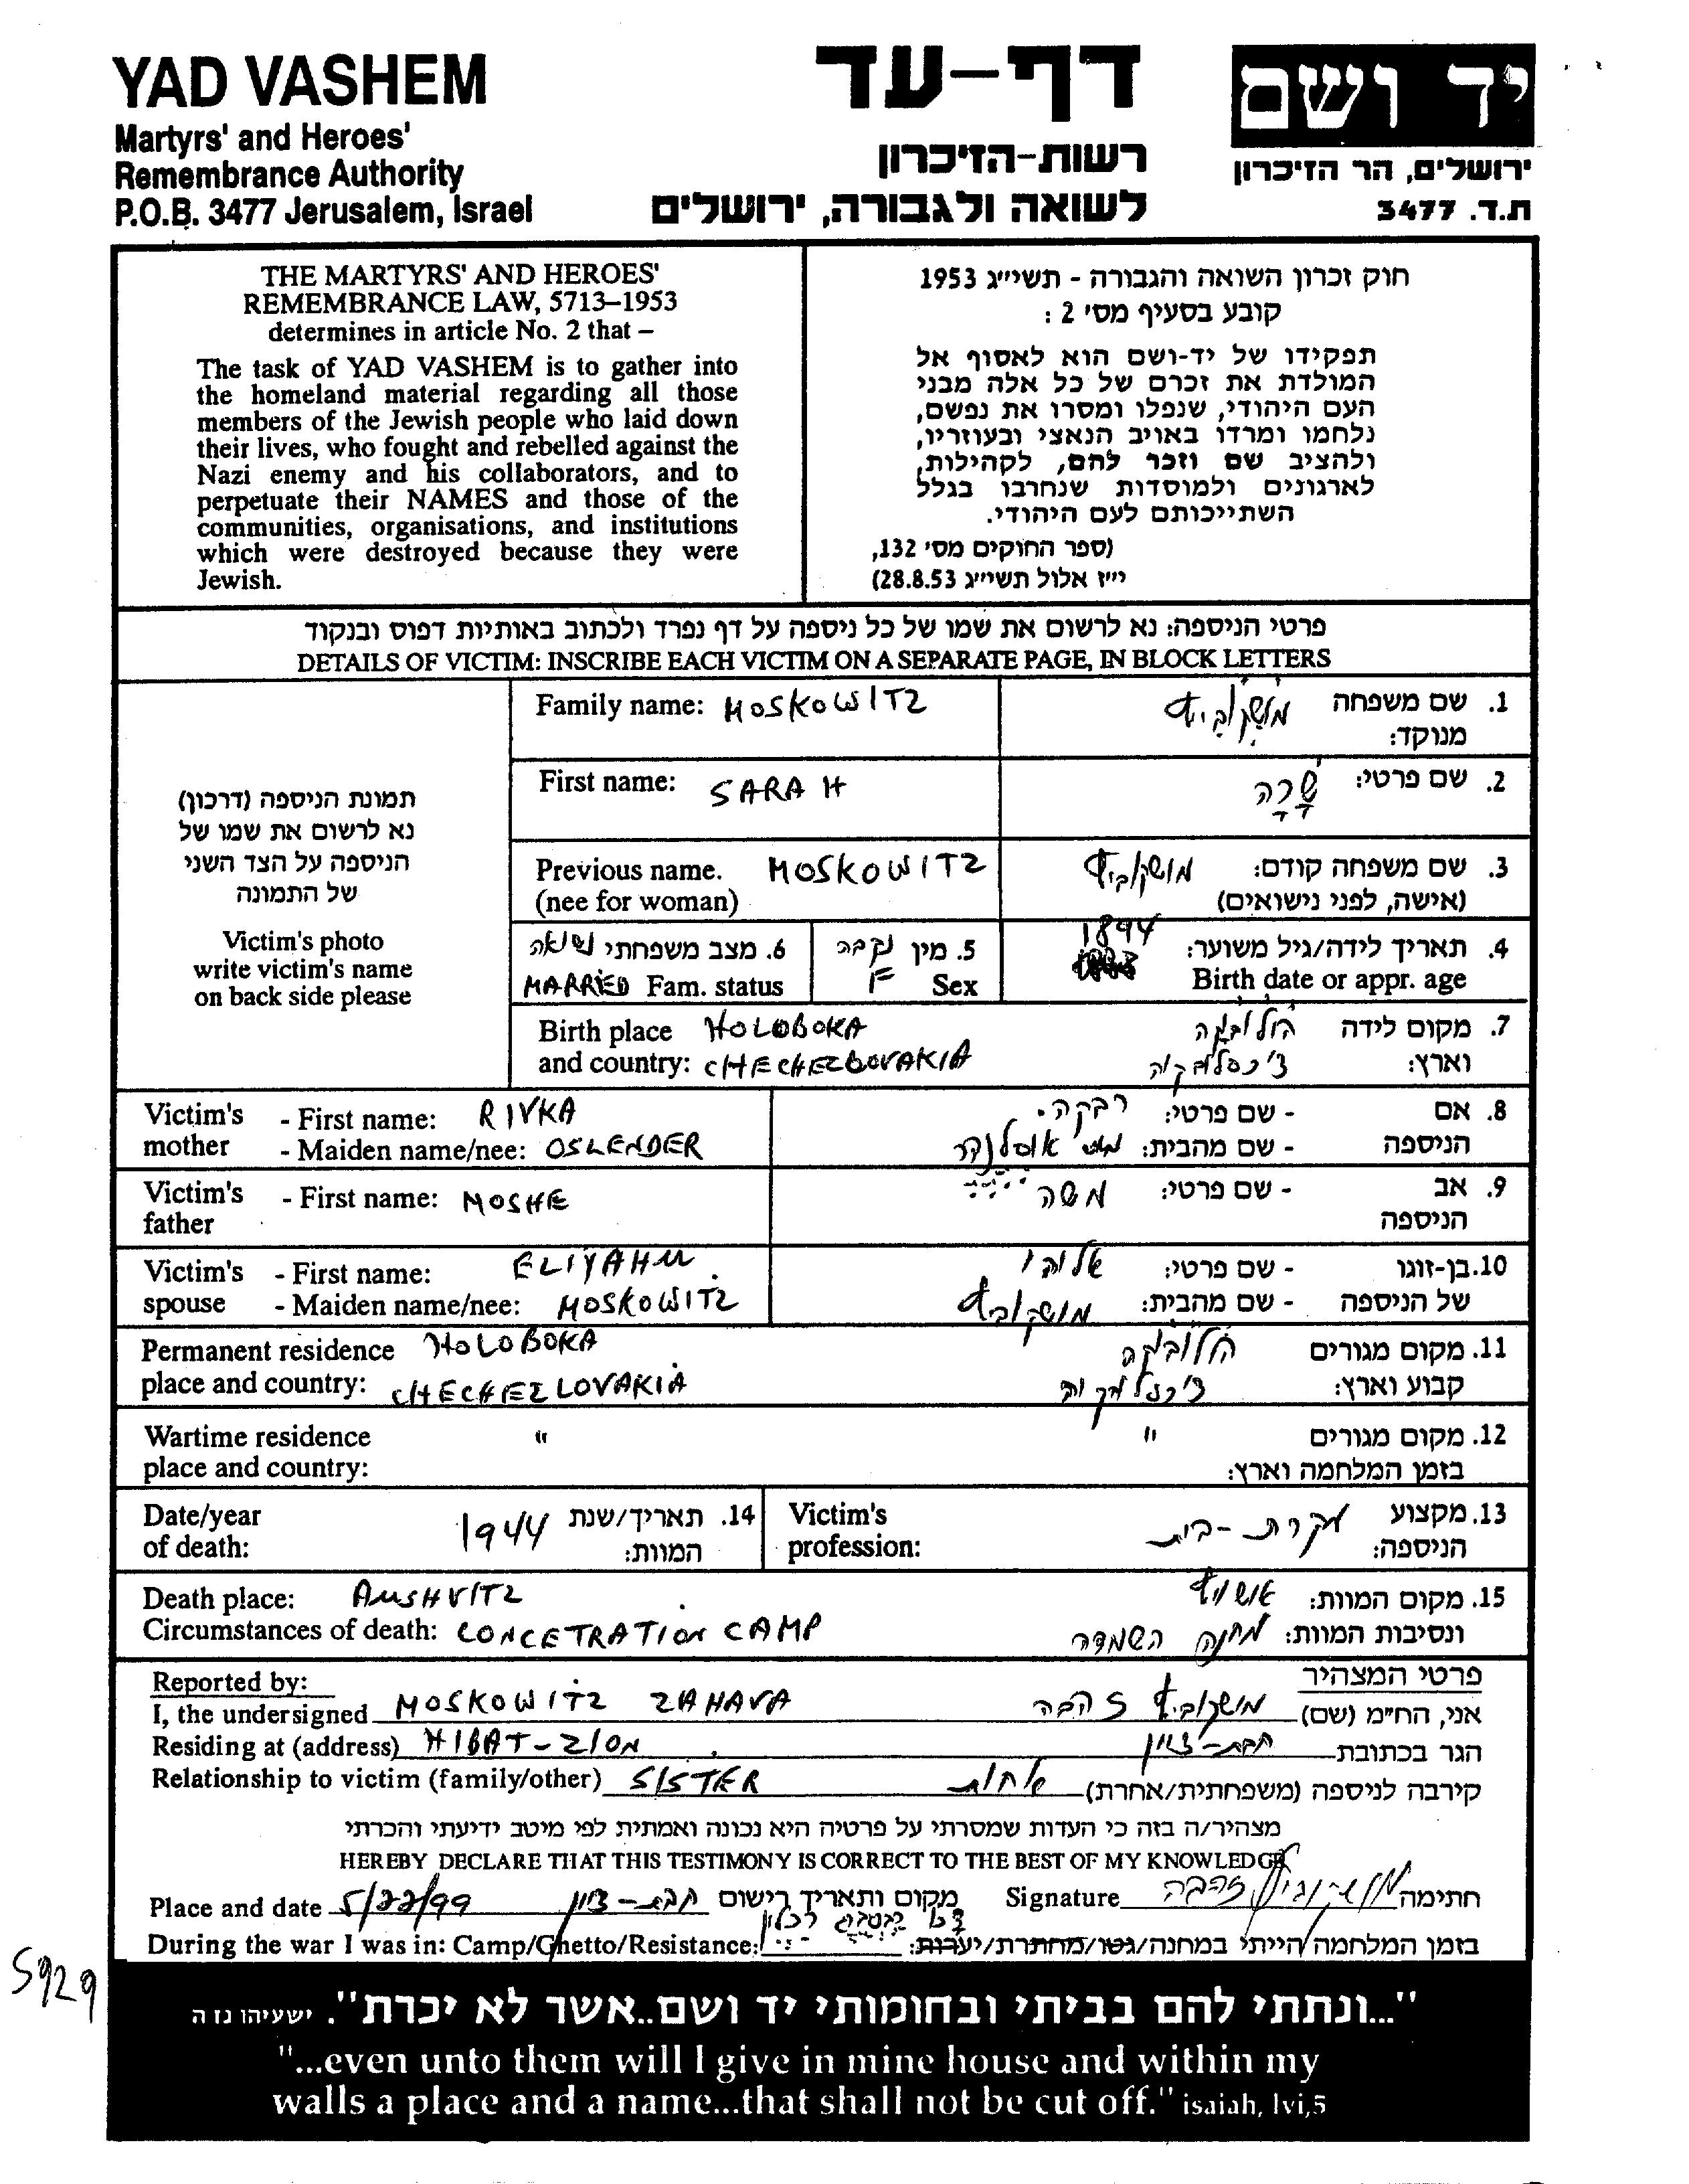 YAD VASHEM
Martyrs' and Heroes'
Remembrance Authority
P.O.B. 3477 Jerusalem, Israel
דף-עד
רשות-הזיכרון
לשואה ולגבורה, ירושלים
יד ושם
ירושלים, הר הזיכרון
ת.ד. 3477
THE MARTYRS' AND HEROES'
REMEMBRANCE LAW, 5713–1953
determines in article No. 2 that –
The task of YAD VASHEM is to gather into
the homeland material regarding all those
members of the Jewish people who laid down
their lives, who fought and rebelled against the
Nazi enemy and his collaborators, and to
perpetuate their NAMES and those of the
communities, organisations, and institutions
which were destroyed because they were
Jewish.
חוק זכרון השואה והגבורה - תשי״ג 1953
קובע בסעיף מס' 2 :
תפקידו של יד-ושם הוא לאסוף אל
המולדת את זכרם של כל אלה מבני
העם היהודי, שנפלו ומסרו את נפשם,
נלחמו ומרדו באויב הנאצי ובעוזריו,
ולהציב שם וזכר להם, לקהילות,
לארגונים ולמוסדות שנחרבו בגלל
השתייכותם לעם היהודי.
(ספר החוקים מס' 132,
י״ז אלול תשי״ג 28.8.53)
פרטי הניספה: נא לרשום את שמו של כל ניספה על דף נפרד ולכתוב באותיות דפוס ובנקוד
DETAILS OF VICTIM: INSCRIBE EACH VICTIM ON A SEPARATE PAGE, IN BLOCK LETTERS
תמונת הניספה (דרכון)
נא לרשום את שמו של
הניספה על הצד השני
של התמונה
Victim's photo
write victim's name
on back side please
Family name: MOSKOWITZ
1. שם משפחה מושקוביץ
מנוקד:
First name: SARAH
2. שם פרטי: שָׂרָה
Previous name. MOSKOWITZ
(nee for woman)
3. שם משפחה קודם: מושקוביץ
(אישה, לפני נישואים)
6. מצב משפחתי נשואה
MARRIED Fam. status
5. מין נקבה
F Sex
4. תאריך לידה/גיל משוער: 1894
Birth date or appr. age
Birth place HOLOBOKA
and country: CHECHEZLOVAKIA
7. מקום לידה הולובקה
וארץ: צ'כסלובקיה
Victim's - First name: RIVKA
mother - Maiden name/nee: OSLENDER
8. אם - שם פרטי: רבקה
הניספה - שם מהבית: אוסלנדר
Victim's - First name: MOSHE
father
9. אב - שם פרטי: משה
הניספה
Victim's - First name: ELIYAHU
spouse - Maiden name/nee: MOSKOWITZ
10. בן-זוגו - שם פרטי: אליהו
של הניספה - שם מהבית: מושקוביץ
Permanent residence HOLOBOKA
place and country: CHECHEZLOVAKIA
11. מקום מגורים הולובקה
קבוע וארץ: צ'כסלובקיה
Wartime residence "
place and country:
12. מקום מגורים "
בזמן המלחמה וארץ:
Date/year
of death:
14. תאריך/שנת 1944
המוות:
Victim's
profession:
13. מקצוע עקרת-בית
הניספה:
Death place: AUSHVITZ
Circumstances of death: CONCETRATION CAMP
15. מקום המוות: אושויץ
ונסיבות המוות: מחנה השמדה
Reported by:
פרטי המצהיר
I, the undersigned MOSKOWITZ ZAHAVA
אני, הח״מ (שם) מושקוביץ זהבה
Residing at (address) HIBAT-ZION
הגר בכתובת חבת-ציון
Relationship to victim (family/other) SISTER
קירבה לניספה (משפחתית/אחרת) אחות
מצהיר/ה בזה כי העדות שמסרתי על פרטיה היא נכונה ואמתית לפי מיטב ידיעתי והכרתי
HEREBY DECLARE THAT THIS TESTIMONY IS CORRECT TO THE BEST OF MY KNOWLEDGE
Place and date 5/22/99 מקום ותאריך רישום חבת-ציון
Signature חתימה מושקוביץ זהבה
During the war I was in: Camp/Ghetto/Resistance:
בזמן המלחמה הייתי במחנה/גטו/מחתרת/יערות:
5929
"...ונתתי להם בביתי ובחומותי יד ושם..אשר לא יכרת". ישעיהו נז ה
"...even unto them will I give in mine house and within my
walls a place and a name...that shall not be cut off." isaiah, lvi,5